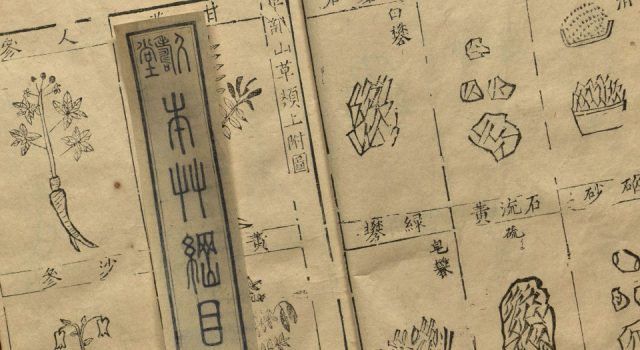 白礬
石流黃
硫
綠礬
皂礬
部山草類上附圖
人參
沙參
黃
本艸綱目